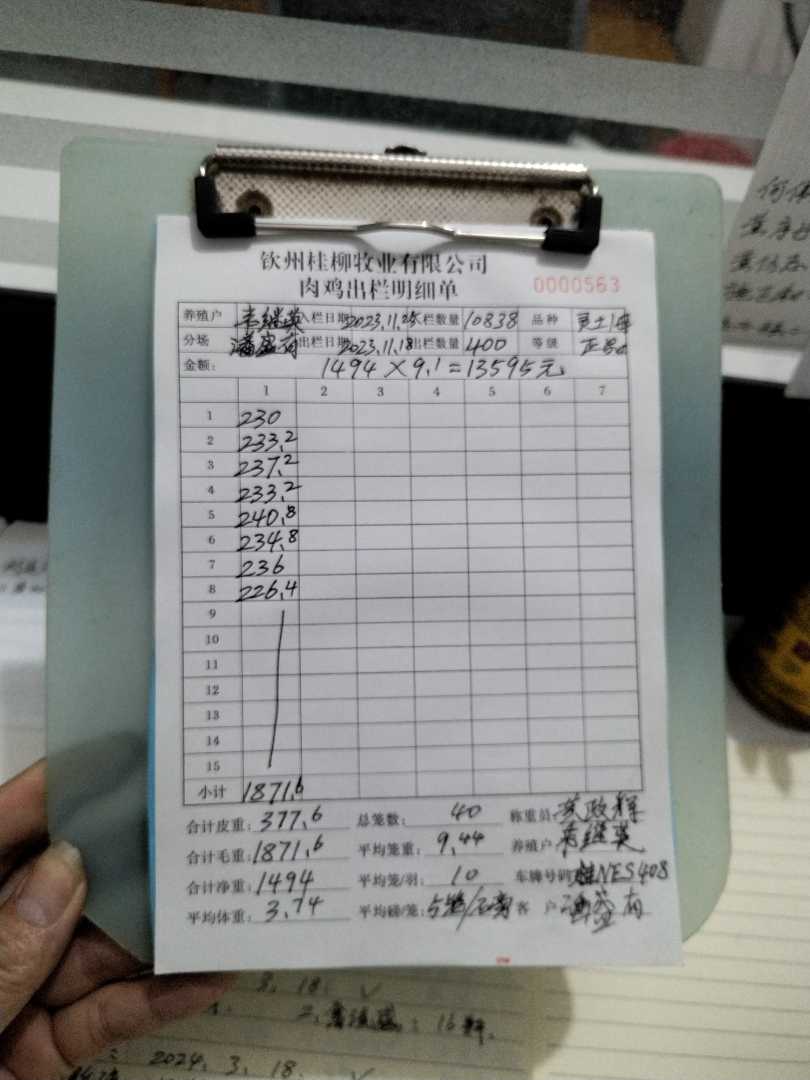 钦州桂柳牧业有限公司
肉鸡出栏明细单
0000563
养殖户 韦继英 入栏日期 2023.11.25 入栏数量 10838 品种
分场 潘盛有 出栏日期 2023.11.18 出栏数量 400 等级
金额: 1494 × 9.1 = 13595元
1 2 3 4 5 6 7
1 230
2 233.2
3 237.2
4 233.2
5 240.8
6 234.8
7 236
8 226.4
9
10
11
12
13
14
15
小计 1871.6
合计皮重: 377.6 总笼数: 40 称重员: 政辉
合计毛重: 1871.6 平均笼重: 9.44 养殖户 韦继英
合计净重: 1494 平均笼/羽: 10 车牌号码 桂NES408
平均体重: 3.74 平均磅/笼: 客 户
3. 18. √
2024. 3. 18. √